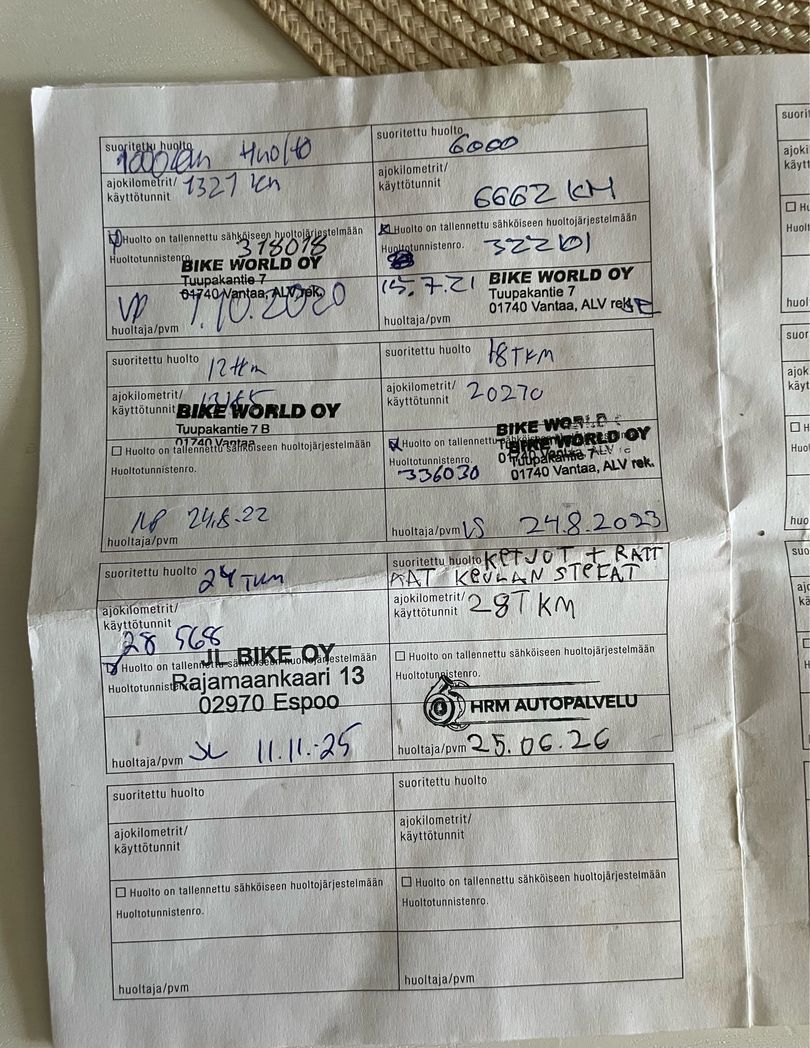 suoritettu huolto
1000km Huolto
ajokilometrit/ 1321 km
käyttötunnit
Huolto on tallennettu sähköiseen huoltojärjestelmään
Huoltotunnistenro. 318018
BIKE WORLD OY
Tuupakantie 7
01740 Vantaa, ALV rek.
VP 1.10.2020
huoltaja/pvm
suoritettu huolto 6000
ajokilometrit/
käyttötunnit 6662 KM
Huolto on tallennettu sähköiseen huoltojärjestelmään
Huoltotunnistenro. 322101
15.7.21 BIKE WORLD OY
Tuupakantie 7
01740 Vantaa, ALV rek.
huoltaja/pvm
suoritettu huolto
12tkm
ajokilometrit/
käyttötunnit
BIKE WORLD OY
Tuupakantie 7 B
01740 Vantaa
Huolto on tallennettu sähköiseen huoltojärjestelmään
Huoltotunnistenro.
24.8.22
huoltaja/pvm
suoritettu huolto 18TKM
ajokilometrit/ 20270
käyttötunnit
BIKE WORLD
Huolto on tallennettu sähköiseen huoltojärjestelmään
BIKE WORLD OY
Huoltotunnistenro.
336030
Tuupakantie 7
01740 Vantaa, ALV rek.
huoltaja/pvm VS 24.8.2023
suoritettu huolto 24TKM
ajokilometrit/
käyttötunnit
28 568
JL BIKE OY
Huolto on tallennettu sähköiseen huoltojärjestelmään
Huoltotunnistenro.
Rajamaankaari 13
02970 Espoo
huoltaja/pvm JL 11.11.-25
suoritettu huolto KETJUT + RATT
AAT KEULAN STEFAT
ajokilometrit/
käyttötunnit 28T KM
Huolto on tallennettu sähköiseen huoltojärjestelmään
Huoltotunnistenro.
HRM AUTOPALVELU
huoltaja/pvm 25.06.26
suoritettu huolto
ajokilometrit/
käyttötunnit
Huolto on tallennettu sähköiseen huoltojärjestelmään
Huoltotunnistenro.
huoltaja/pvm
suoritettu huolto
ajokilometrit/
käyttötunnit
Huolto on tallennettu sähköiseen huoltojärjestelmään
Huoltotunnistenro.
huoltaja/pvm